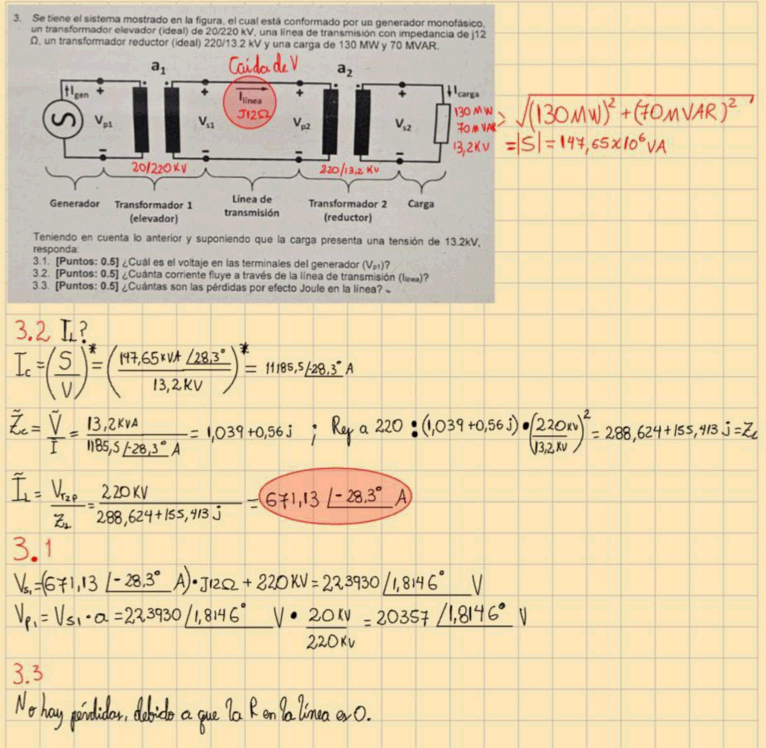 3. Se tiene el sistema mostrado en la figura, el cual está conformado por un generador monofásico,
un transformador elevador (ideal) de 20/220 kV, una línea de transmisión con impedancia de j12
Ω, un transformador reductor (ideal) 220/13.2 kV y una carga de 130 MW y 70 MVAR.
a₁ Caída de V a₂
I gen I línea I carga
J12Ω
V p1 V s1 V p2 V s2
130 MW
70 MVAR
13,2KV
> √(130MW)² + (70MVAR)²
= |S| = 147,65x10⁶ VA
20/220 KV 220/13,2 KV
Generador Transformador 1 (elevador) Línea de transmisión Transformador 2 (reductor) Carga
Teniendo en cuenta lo anterior y suponiendo que la carga presenta una tensión de 13.2kV,
responda:
3.1. [Puntos: 0.5] ¿Cuál es el voltaje en las terminales del generador (Vp1)?
3.2. [Puntos: 0.5] ¿Cuánta corriente fluye a través de la línea de transmisión (Ilínea)?
3.3. [Puntos: 0.5] ¿Cuántas son las pérdidas por efecto Joule en la línea?
3.2 I_L?
I_c = (S/V)* = (147,65KVA /28,3° / 13,2KV)* = 11185,5 /-28,3° A
Z̃c = Ṽ/Ĩ = 13,2KVA / 1185,5 /-28,3° A = 1,039 + 0,56j ; Ref a 220 : (1,039 + 0,56j) • (220KV / 13,2KV)² = 288,624 + 155,413j = Z_L
Ĩ_L = V_T2P / Z_L = 220KV / 288,624 + 155,413j = 671,13 /-28,3° A
3.1
Vs₁ = (671,13 /-28,3° A) • J12Ω + 220KV = 223930 /1,8146° V
Vp₁ = Vs₁ • a = 223930 /1,8146° V • 20KV / 220KV = 20357 /1,8146° V
3.3
No hay pérdidas, debido a que la R en la línea es 0.